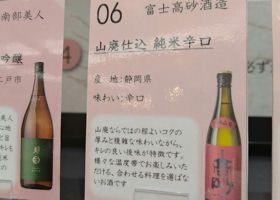 南部美人
吟醸
二戸市
06
富士高砂酒造
山廃仕込 純米辛口
産 地:静岡県
味わい:辛口
山廃ならではの程よいコクの
厚みと複雑な味わいながら、
キレの良い後味が特徴です。
様々な温度帯でお楽しみいた
だける、合わせる料理を選ばな
いお酒です